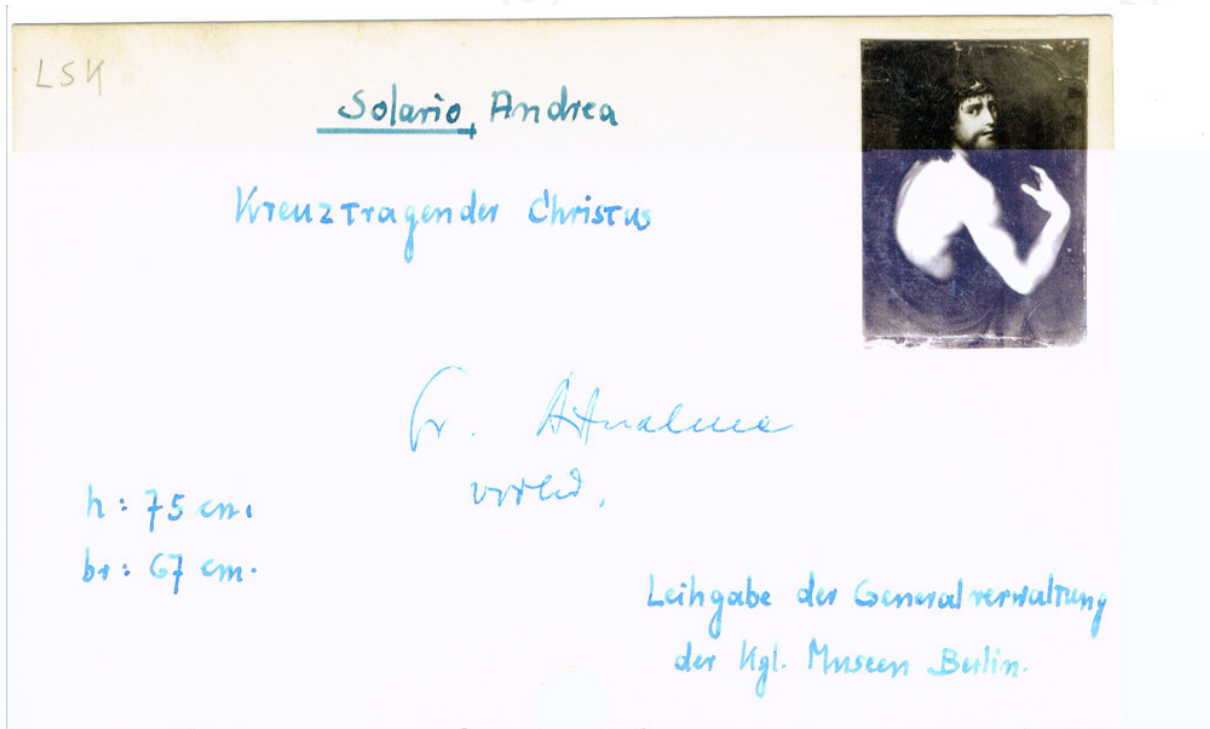 LSK
Solario, Andrea
Kreuztragender Christus
Gr. Aufnahme
vorhd.
h: 75 cm.
br: 67 cm.
Leihgabe der Generalverwaltung
der Kgl. Museen Berlin.